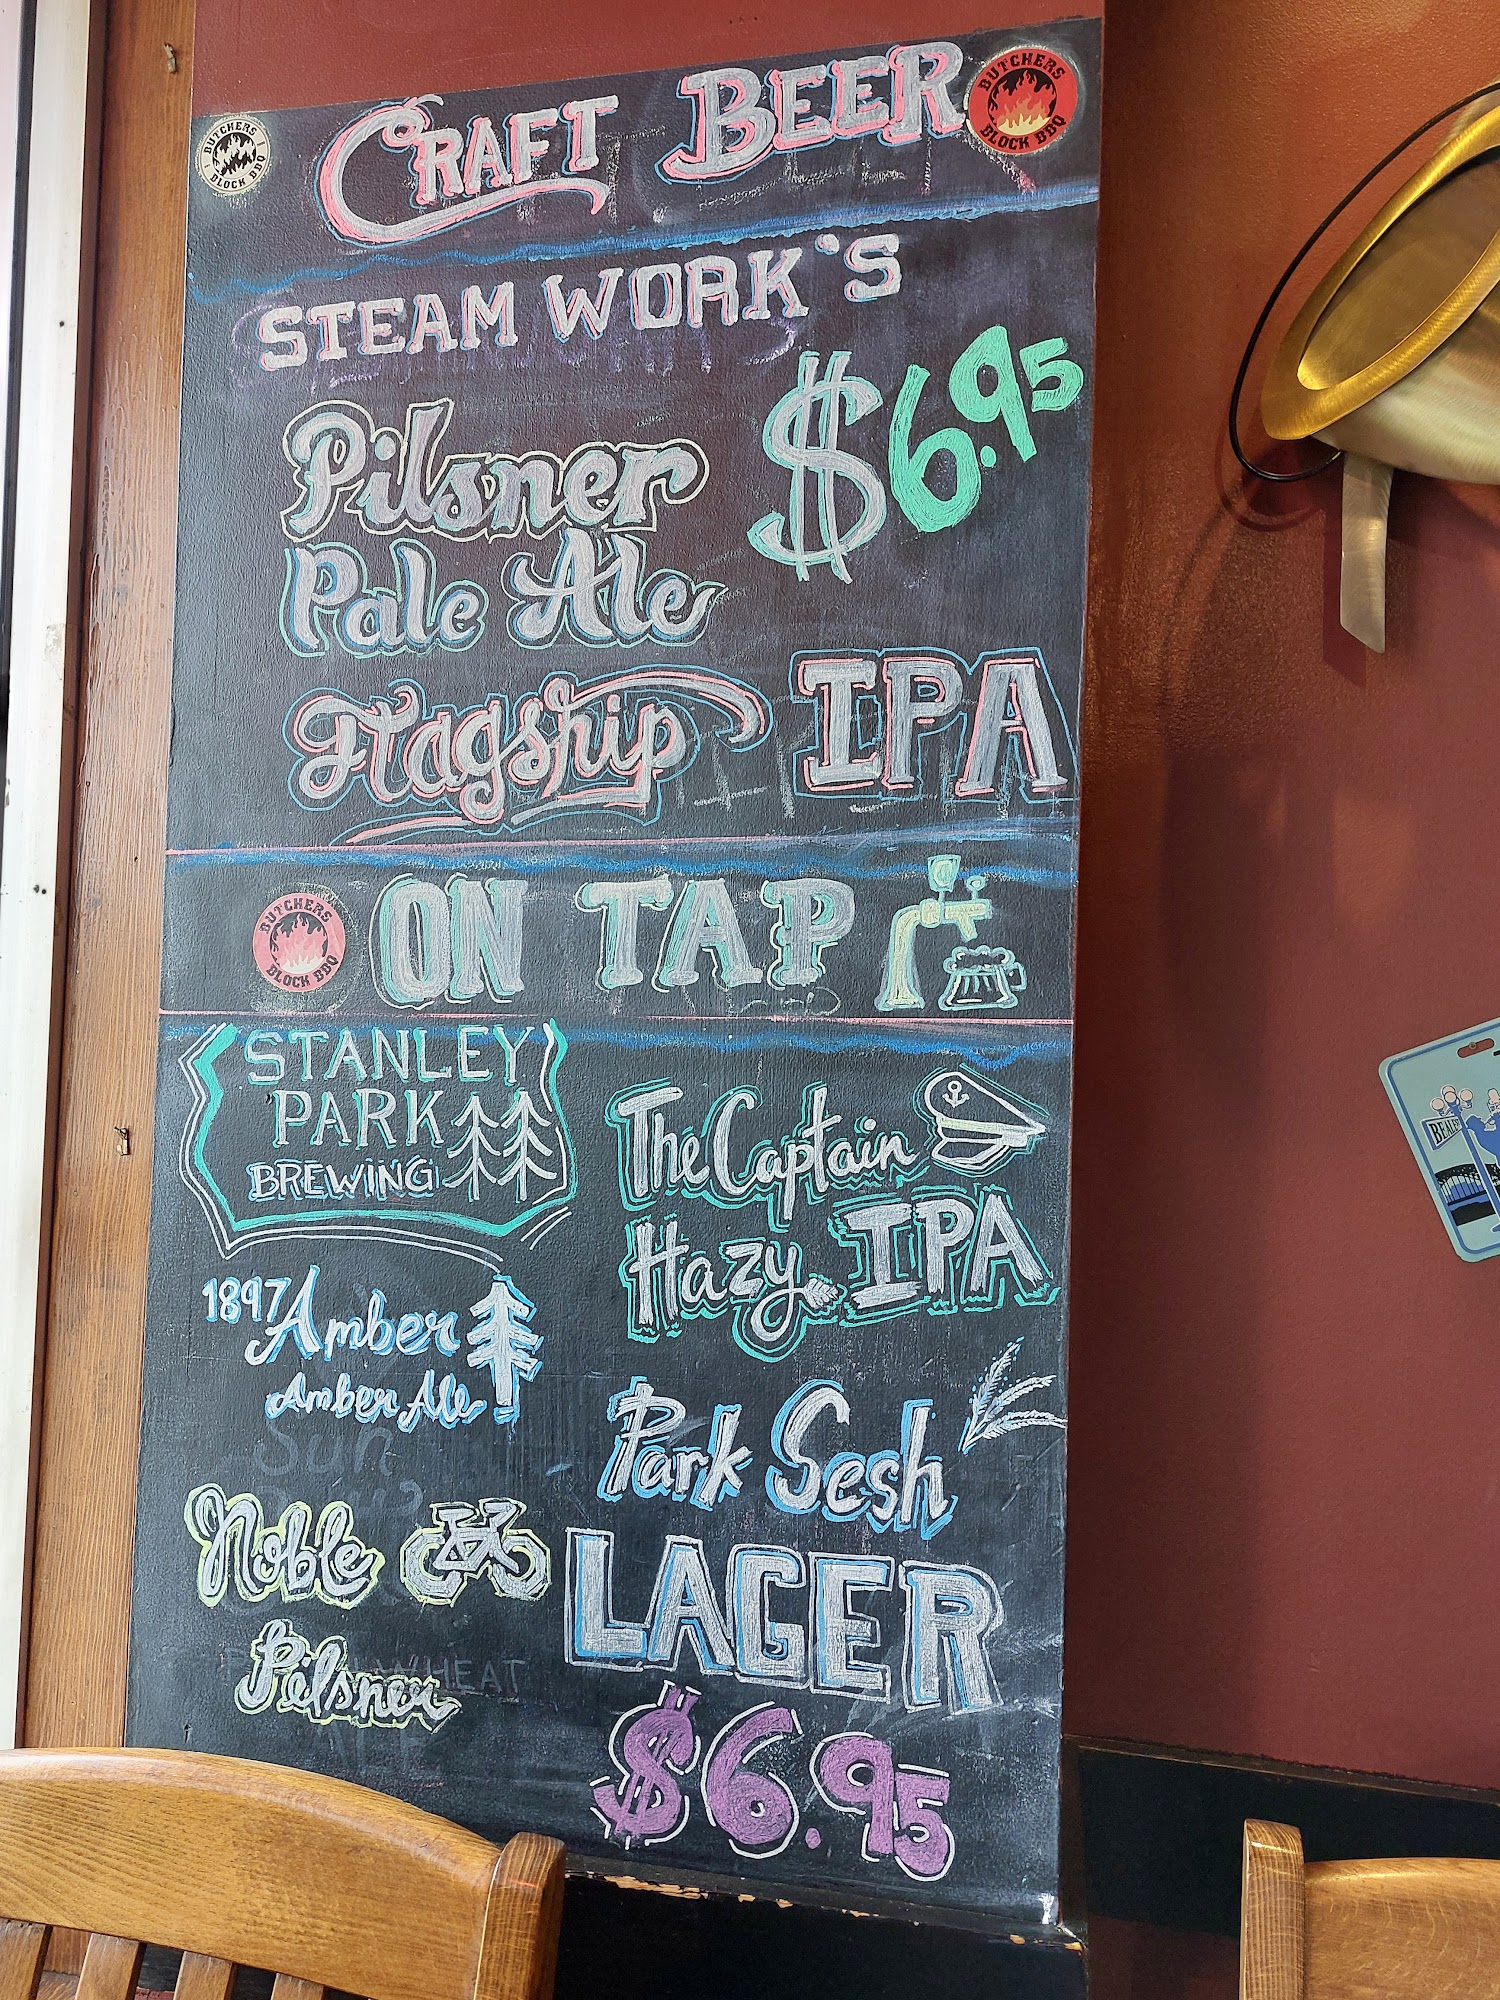 CRAFT BEER
BUTCHERS
BLOCK BBQ
BUTCHERS
BLOCK BBQ
STEAM WORK'S
$6.95
Pilsner
Pale Ale
Flagship IPA
BUTCHERS
BLOCK BBQ
ON TAP
STANLEY
PARK
BREWING
The Captain
Hazy IPA
1897 Amber
Amber Ale
Sun
Park Sesh
LAGER
Noble
Pilsner
WHEAT
$6.95